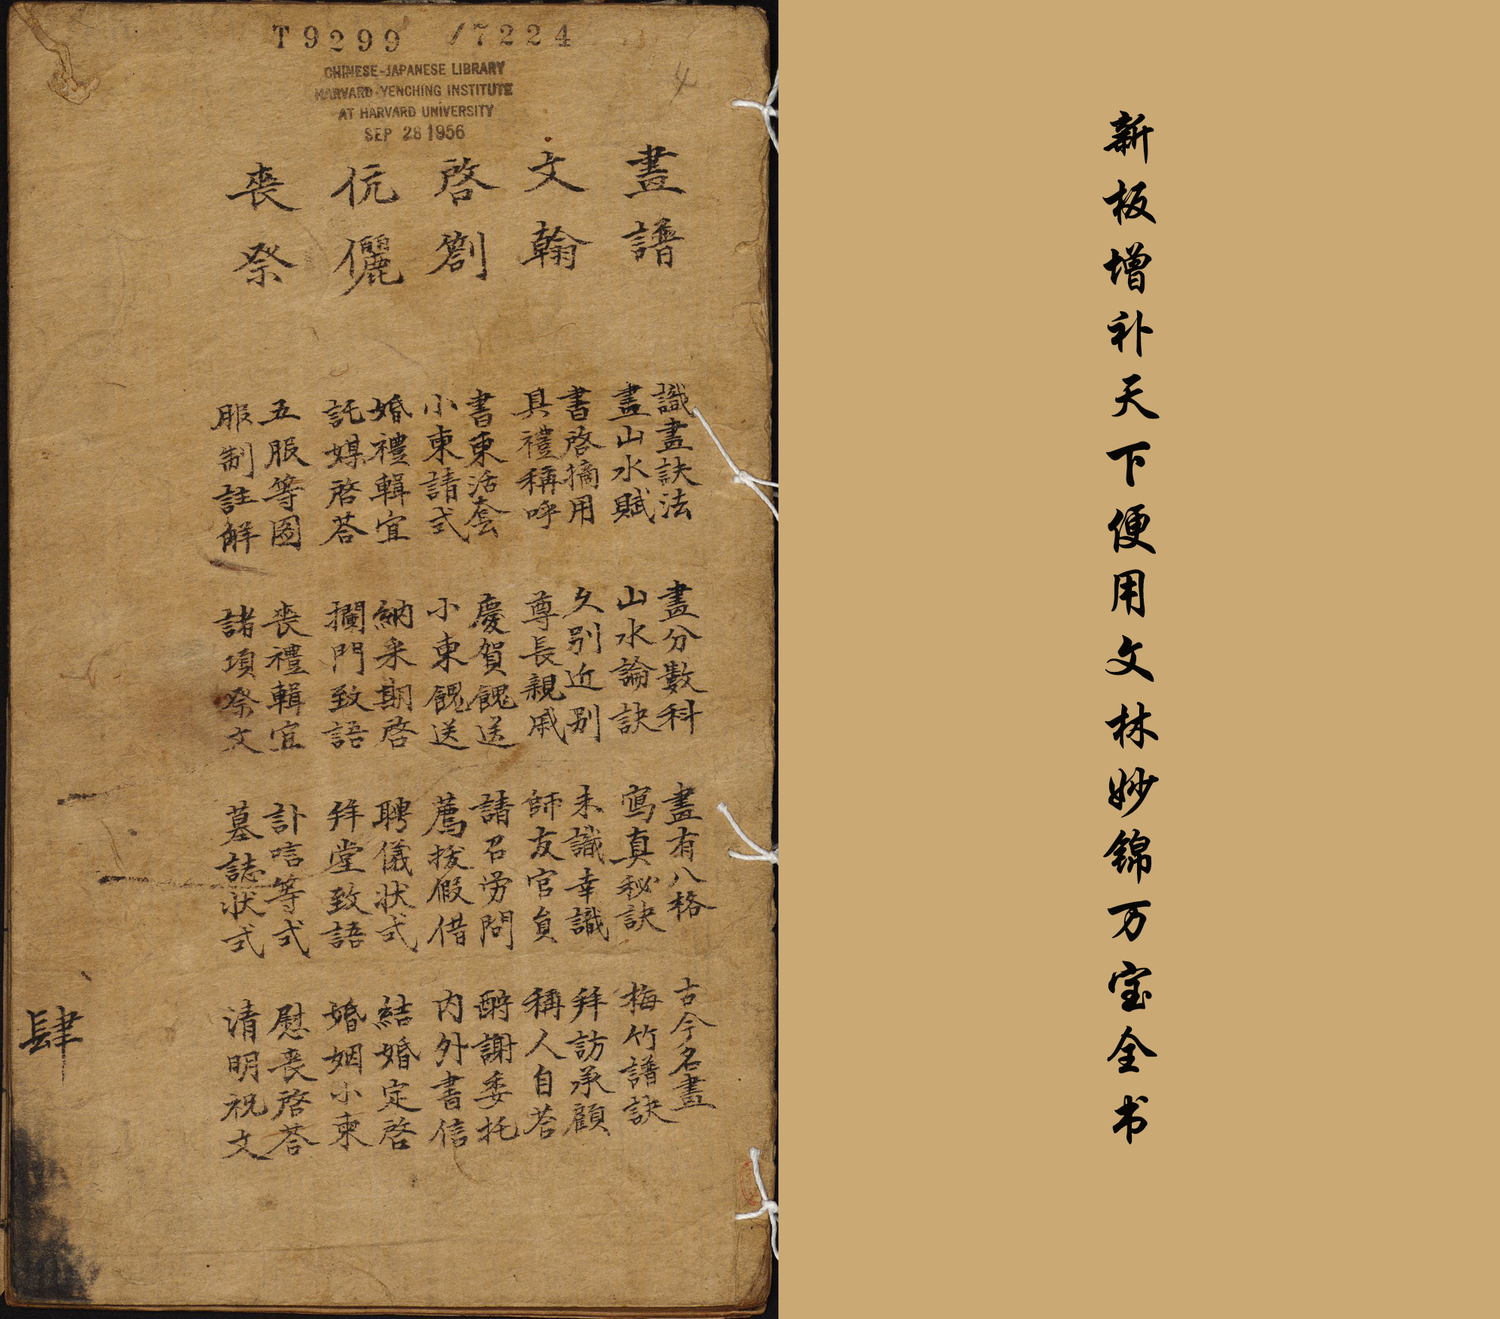 T9299 /7224
4
CHINESE-JAPANESE LIBRARY
HARVARD-YENCHING INSTITUTE
AT HARVARD UNIVERSITY
SEP 28 1956
畫譜
文翰
啓劄
伉儷
喪祭
識畫訣法 畫分數科 畫有八格 古今名畫
畫山水賦 山水論訣 寫真秘訣 梅竹譜訣
書啓摘用 久别近别 未識幸識 拜訪承顧
具禮稱呼 尊長親戚 師友官員 稱人自荅
書柬活套 慶賀餽送 請召勞問 酧謝委托
小柬請式 小柬餽送 薦拔假借 内外書信
婚禮輯宜 納采期啓 聘儀狀式 結婚定啓
託媒啓荅 攔門致語 拜堂致語 婚姻小柬
五服等圖 喪禮輯宜 訃唁等式 慰喪啓荅
服制註解 諸項祭文 墓誌狀式 清明祝文
肆
新板增补天下便用文林妙锦万宝全书